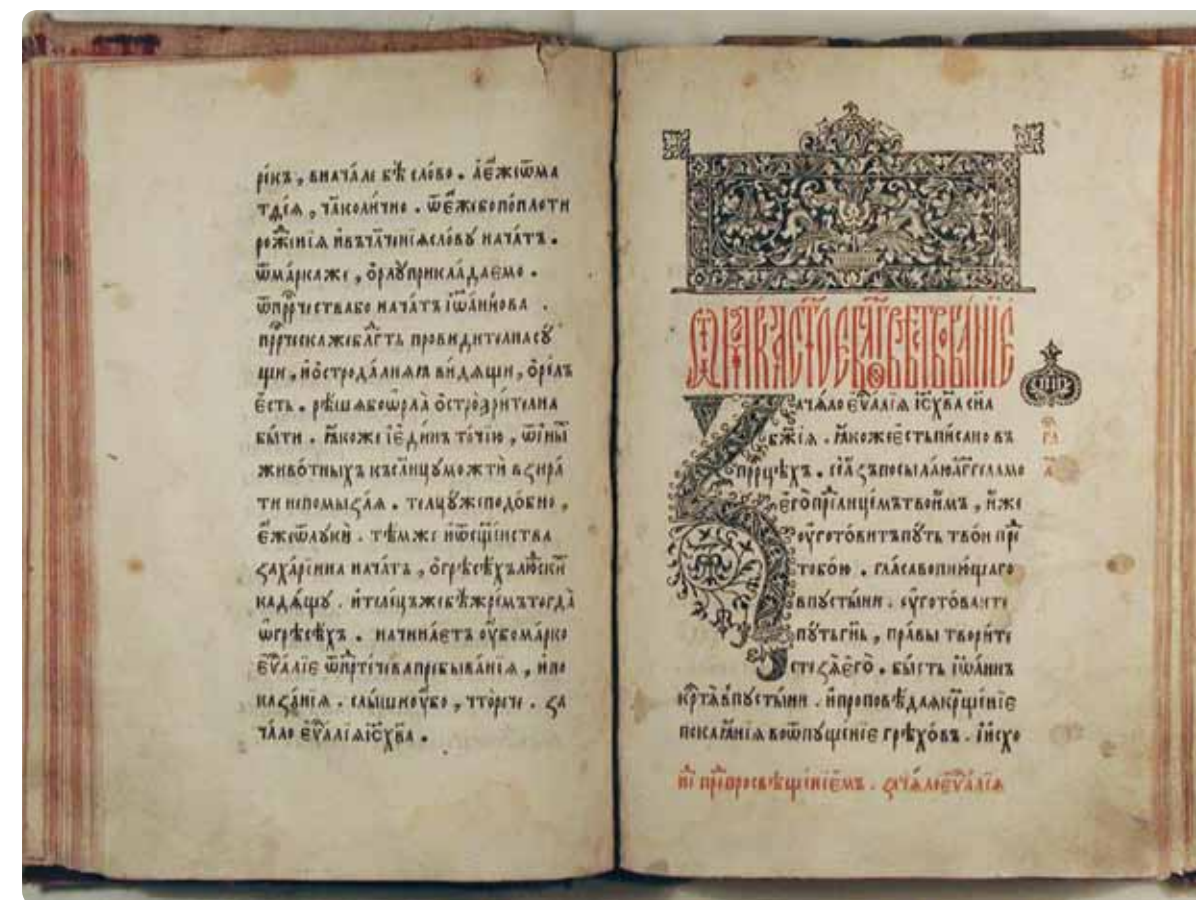 ре́къ, внача́ле бѣ̀ сло́во. А҆е҆́жеѿма
тдѐа, ча̀коли́чно. ѿе҆́жебопопло́ти
роже́нїѧ и҆въчл҃че́нїѧсло́ву нача́тъ.
ѿма́ркаже, ѻ҆рлу̀приклада́емо.
ѿпрⷪ҇чествабо нача́тъ і҆ѡа́ннова.
прⷪ҇ческажебл҃гть провидителнасꙋ̀
щи, и҆ѻ҆строда́лнѧѧ ви́дѧщи, ѻ҆ре́лъ
е҆́сть. рѣ́шѧбоѡ҆рла̀ ѻ҆строзри́телна
бы́ти. ꙗ҆́коже і҆е҆ди́нъ то́чїю, ѿи҆ны́
живо́тныхъ къслн҃цꙋмо́жти взира́
ти непомыза́ѧ. телцꙋ́жеподо́бно,
е҆́жеѿлꙋкѝ. тѣ́мже и҆ѿсщ҃е́нства
заха́рїина нача́тъ, ѻ҆грѣсѣ́хълю́ски
кадѧ́щꙋ. и҆теле́цъжебѣ̀жре́мътогда̀
ѡ҆грѣсѣ́хъ. начина́етъ ᲂу҆бома́рко
е҆ѵⷢ҇а́лїе ѿпрⷣте́чевапребыва́нїѧ, и҆по
каза́нїѧ. слы́шиᲂу҆̀бо, что̀рече. за
ча́ло е҆ѵⷢ҇а́лїѧі҆с҃х҃ва.
37
ѿма́рка ст҃о́е бл҃говѣствова́нїе
Зача́ло е҆ѵⷢ҇а́лїѧ і҆с҃х҃ва сн҃а
бж҃їѧ. ꙗ҆́кожее҆́стьпи́сано въ
прⷪ҇рцѣхъ. се́а҆зъпосыла́юа҆́гг҃еламо
е҆го̀пре́длице́мътвои́мъ, и҆́же
ᲂу҆гото́витъпꙋ́ть тво́и прⷣе
тобо́ю. гла́съвопию́щаго
впꙋсты́ни. ᲂу҆гото́ваите
пꙋ́тьгн҃ь, пра́вы твори́те
стезѧ̀е҆го̀. бы́сть і҆ѡа́ннъ
кр҃тѧ́впꙋсты́ни. и҆проповѣ́даѧкрⷭ҇ще́нїе
покаѧ́нїѧ воѿпꙋще́нїе грѣхо́въ. і҆и҆схо
нⷣе прⷣепросвѣще́нїемъ. зача́лоеѵⷢ҇а́лїѧ